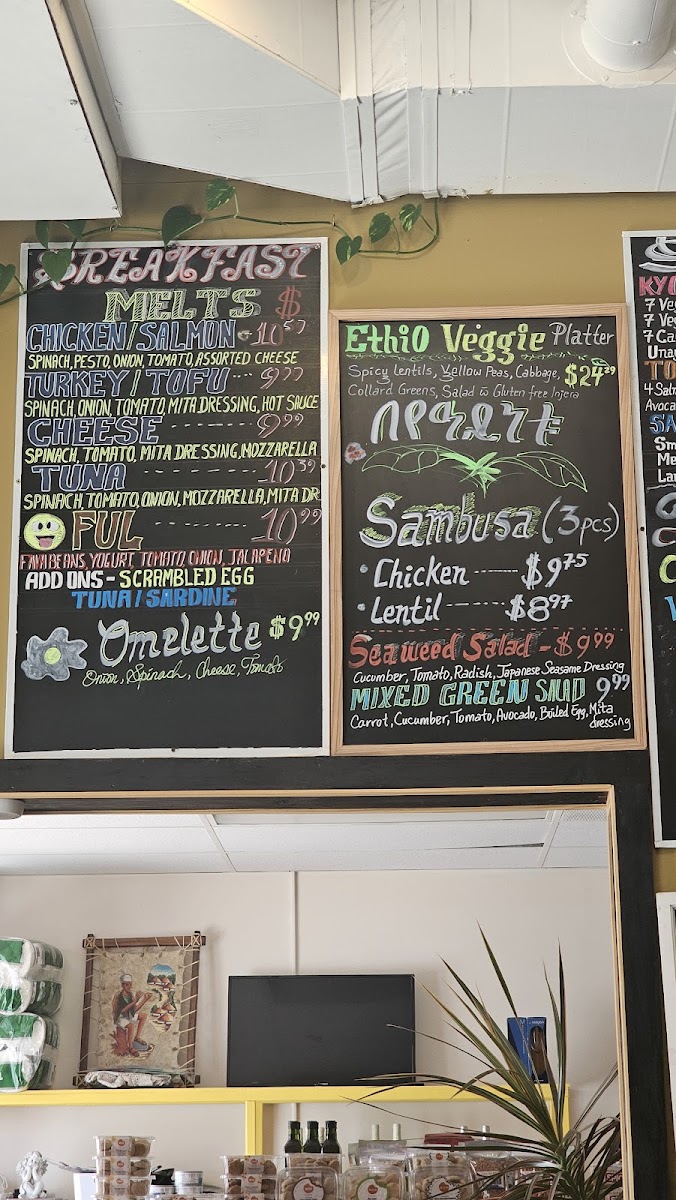 BREAKFAST
MELTS $
CHICKEN/SALMON - 10
SPINACH, PESTO, ONION, TOMATO, ASSORTED CHEESE
TURKEY / TOFU --- 9.99
SPINACH, ONION, TOMATO, MITA DRESSING, HOT SAUCE
CHEESE -------- 9.99
SPINACH, TOMATO, MITA DRESSING, MOZZARELLA
TUNA -------- 10.39
SPINACH, TOMATO, ONION, MOZZARELLA, MITA DR
FUL ------ 10.99
FAVA BEANS, YOGURT, TOMATO, ONION, JALAPENO
ADD ONS - SCRAMBLED EGG
TUNA / SARDINE
Omelette $9.99
Onion, Spinach, Cheese, Tomato
Ethio Veggie Platter
Spicy Lentils, Yellow Peas, Cabbage, $24
Collard Greens, Salad w Gluten free Injera
Sambusa (3pcs)
• Chicken ------ $9.75
• Lentil ------ $8.97
Seaweed Salad - $9.99
Cucumber, Tomato, Radish, Japanese Seasame Dressing
MIXED GREEN SALAD 9.99
Carrot, Cucumber, Tomato, Avocado, Boiled Egg, Mita
dressing
7
7
7
4